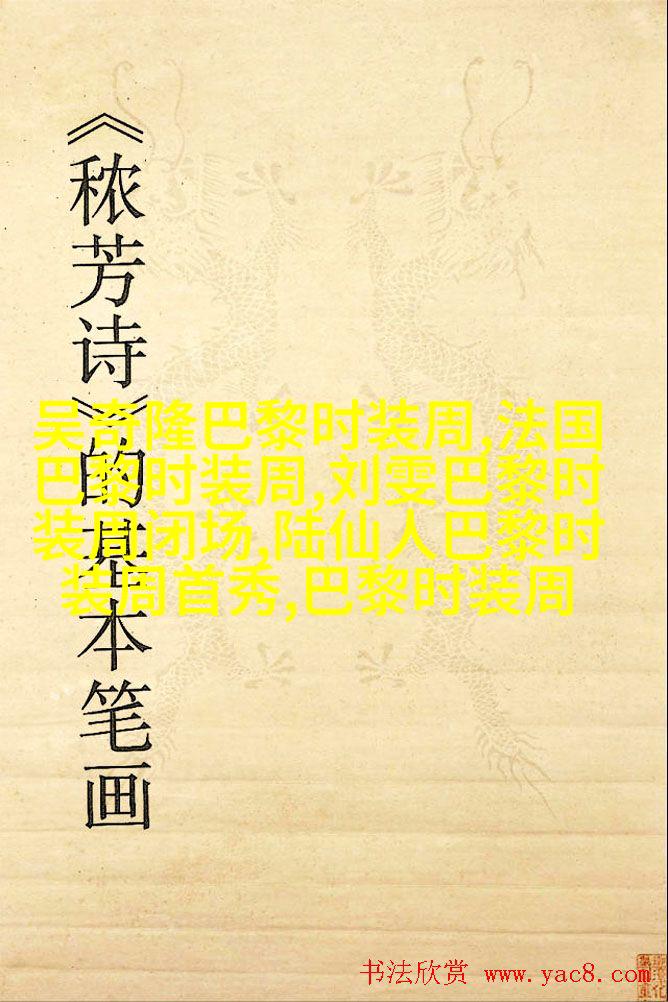 《秾芳诗》的基本笔画
吴奇隆巴黎时装周,法国
巴黎时装周,刘雯巴黎时
装周闭场,陆仙人巴黎时
装周首秀,巴黎时装周
书法欣赏 www.yac8.com